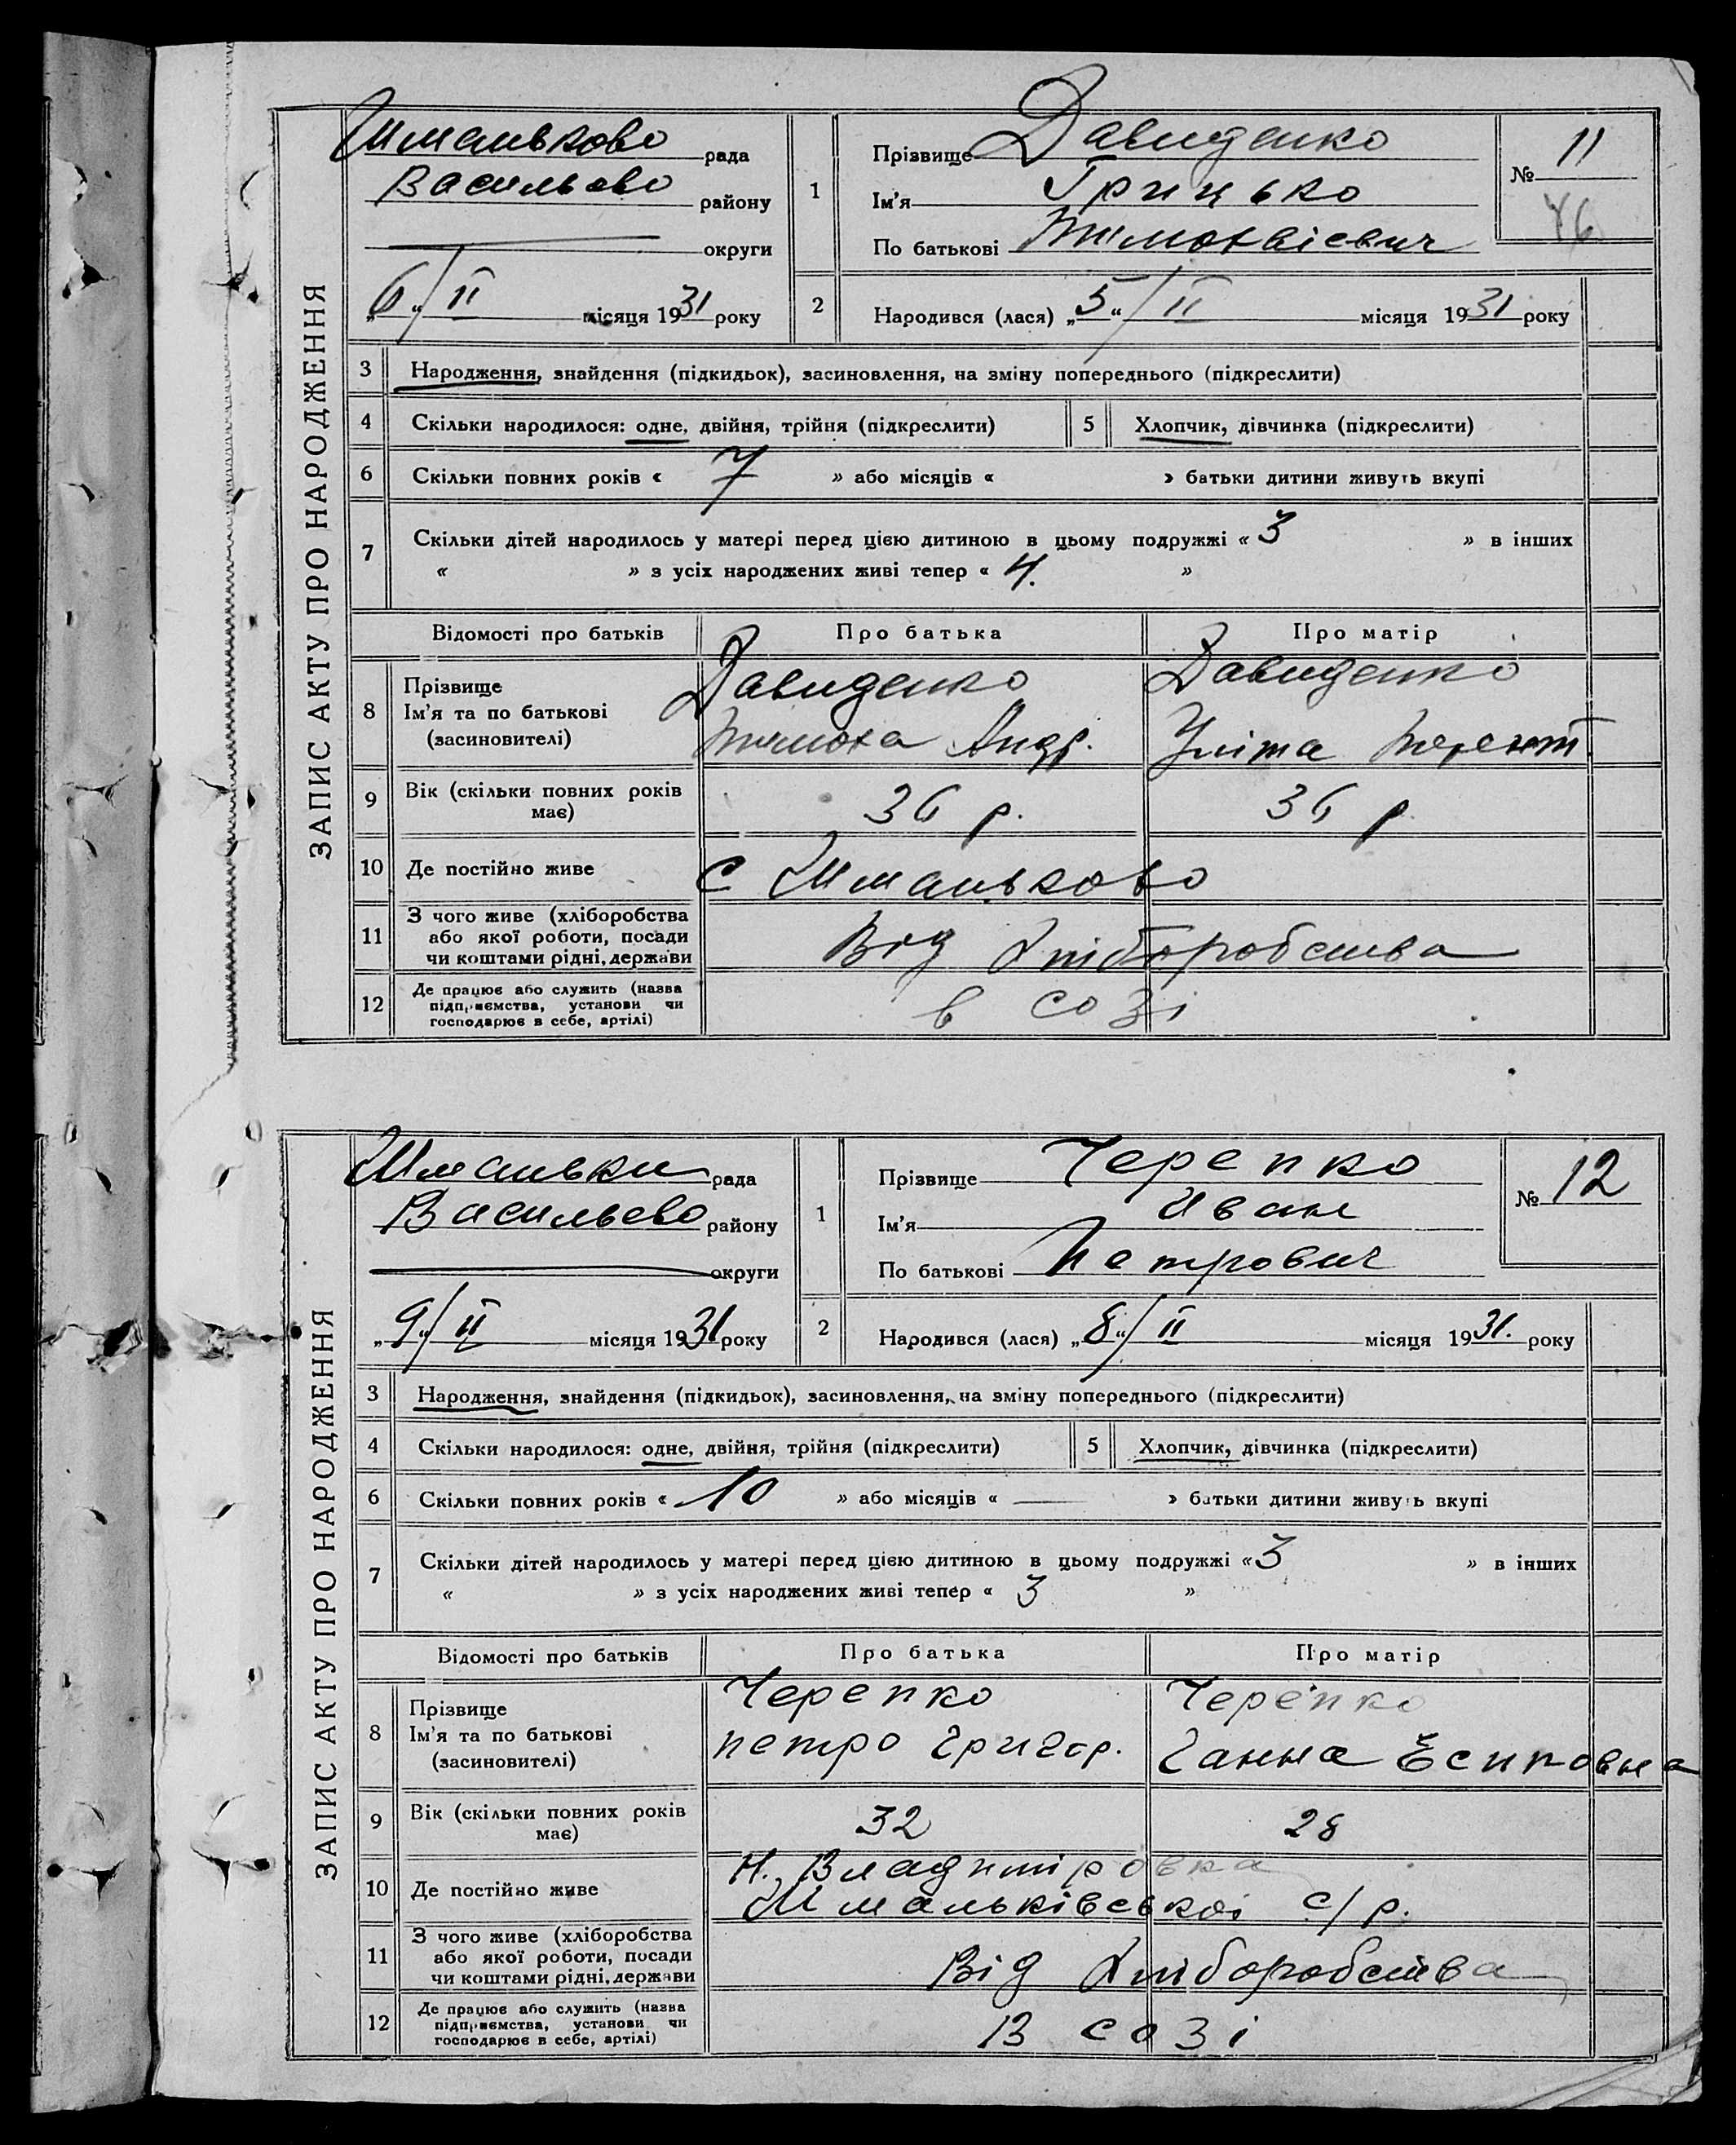 ЗАПИС АКТУ ПРО НАРОДЖЕННЯ
Шмальково рада
Васильево району
округи
„6“/II місяця 1931 року
1
Прізвище Давиденко
Ім'я Грицько
По батькові Тимохвієвич
№ 11
46
2
Народився (лася) „5“/II місяця 1931 року
3 Народження, знайдення (підкидьок), засиновлення, на зміну попереднього (підкреслити)
4 Скільки народилося: одне, двійня, трійня (підкреслити) 5 Хлопчик, дівчинка (підкреслити)
6 Скільки повних років « 7 » або місяців « » батьки дитини живуть вкупі
7 Скільки дітей народилось у матері перед цією дитиною в цьому подружжі « 3 » в інших
« » з усіх народжених живі тепер « 4. »
Відомості про батьків Про батька Про матір
8 Прізвище
Ім'я та по батькові
(засиновителі)
Давиденко
Тимоха Андр.
Давиденко
Уліта Терент.
9 Вік (скільки повних років
має)
36 р. 36 р
10 Де постійно живе С Шмальково
11 З чого живе (хліборобства
або якої роботи, посади
чи коштами рідні, держави
Від хліборобства
12 Де працює або служить (назва
підприємства, установи чи
господарює в себе, артілі)
в созі
ЗАПИС АКТУ ПРО НАРОДЖЕННЯ
Шмальки рада
Васильево району
округи
„9“/II місяця 1931 року
1
Прізвище Черепко
Ім'я Иван
По батькові Петрович
№ 12
2
Народився (лася) „8“/II місяця 1931. року
3 Народження, знайдення (підкидьок), засиновлення, на зміну попереднього (підкреслити)
4 Скільки народилося: одне, двійня, трійня (підкреслити) 5 Хлопчик, дівчинка (підкреслити)
6 Скільки повних років « 10 » або місяців « — » батьки дитини живуть вкупі
7 Скільки дітей народилось у матері перед цією дитиною в цьому подружжі « 3 » в інших
« » з усіх народжених живі тепер « 3 »
Відомості про батьків Про батька Про матір
8 Прізвище
Ім'я та по батькові
(засиновителі)
Черепко
петро Григор.
Черепко
Ганна Есиповна
9 Вік (скільки повних років
має)
32 28
10 Де постійно живе
Н. Владиміровка
Шмальківської с/р.
11 З чого живе (хліборобства
або якої роботи, посади
чи коштами рідні, держави
Від хліборобства
12 Де працює або служить (назва
підприємства, установи чи
господарює в себе, артілі)
В созі